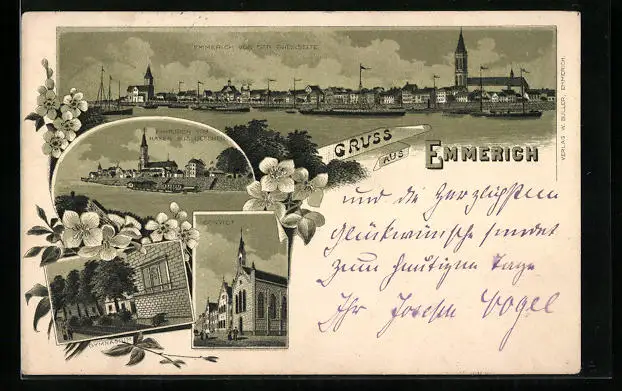 EMMERICH VON DER RHEINSEITE
EMMERICH VOM
HAFEN AUS GESEHEN
GRUSS
AUS
EMMERICH
CONVICT
GYMNASIUM
VERLAG W. BÜLLER, EMMERICH.
und die herzlichsten
Glückwünsche sendet
zum heutigen Tage
Ihr Joseph Vogel